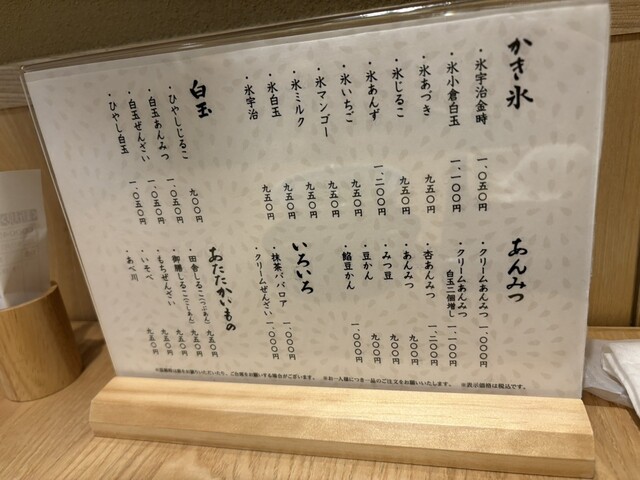 かき氷
・氷宇治金時 一、〇五〇円
・氷小倉白玉 一、一〇〇円
・氷あづき 九五〇円
・氷じるこ 九五〇円
・氷あんず 一、二〇〇円
・氷いちご 九五〇円
・氷マンゴー 九五〇円
・氷ミルク 九五〇円
・氷白玉 九五〇円
・氷宇治 九五〇円
白玉
・ひやしじるこ 九〇〇円
・白玉あんみつ 一、〇五〇円
・白玉ぜんざい 一、〇五〇円
・ひやし白玉 一、〇五〇円
あんみつ
・クリームあんみつ 一、〇〇〇円
・クリームあんみつ 一、一〇〇円
白玉二個増し
・杏あんみつ 一、二〇〇円
・あんみつ 九〇〇円
・みつ豆 九〇〇円
・豆かん 九〇〇円
・餡豆かん 一、〇〇〇円
いろいろ
・抹茶ババロア 一、〇〇〇円
・クリームぜんざい 一、〇〇〇円
あたたかいもの
・田舎しるこ(つぶあん) 九五〇円
・御膳しるこ(こしあん) 九五〇円
・もちぜんざい 九五〇円
・いそべ 九五〇円
・あべ川 九五〇円
※混雑時は席をお譲りいただいたり、ご相席をお願いする場合がございます。 ※お一人様につき一品のご注文をお願いいたします。 ※表示価格は税込です。